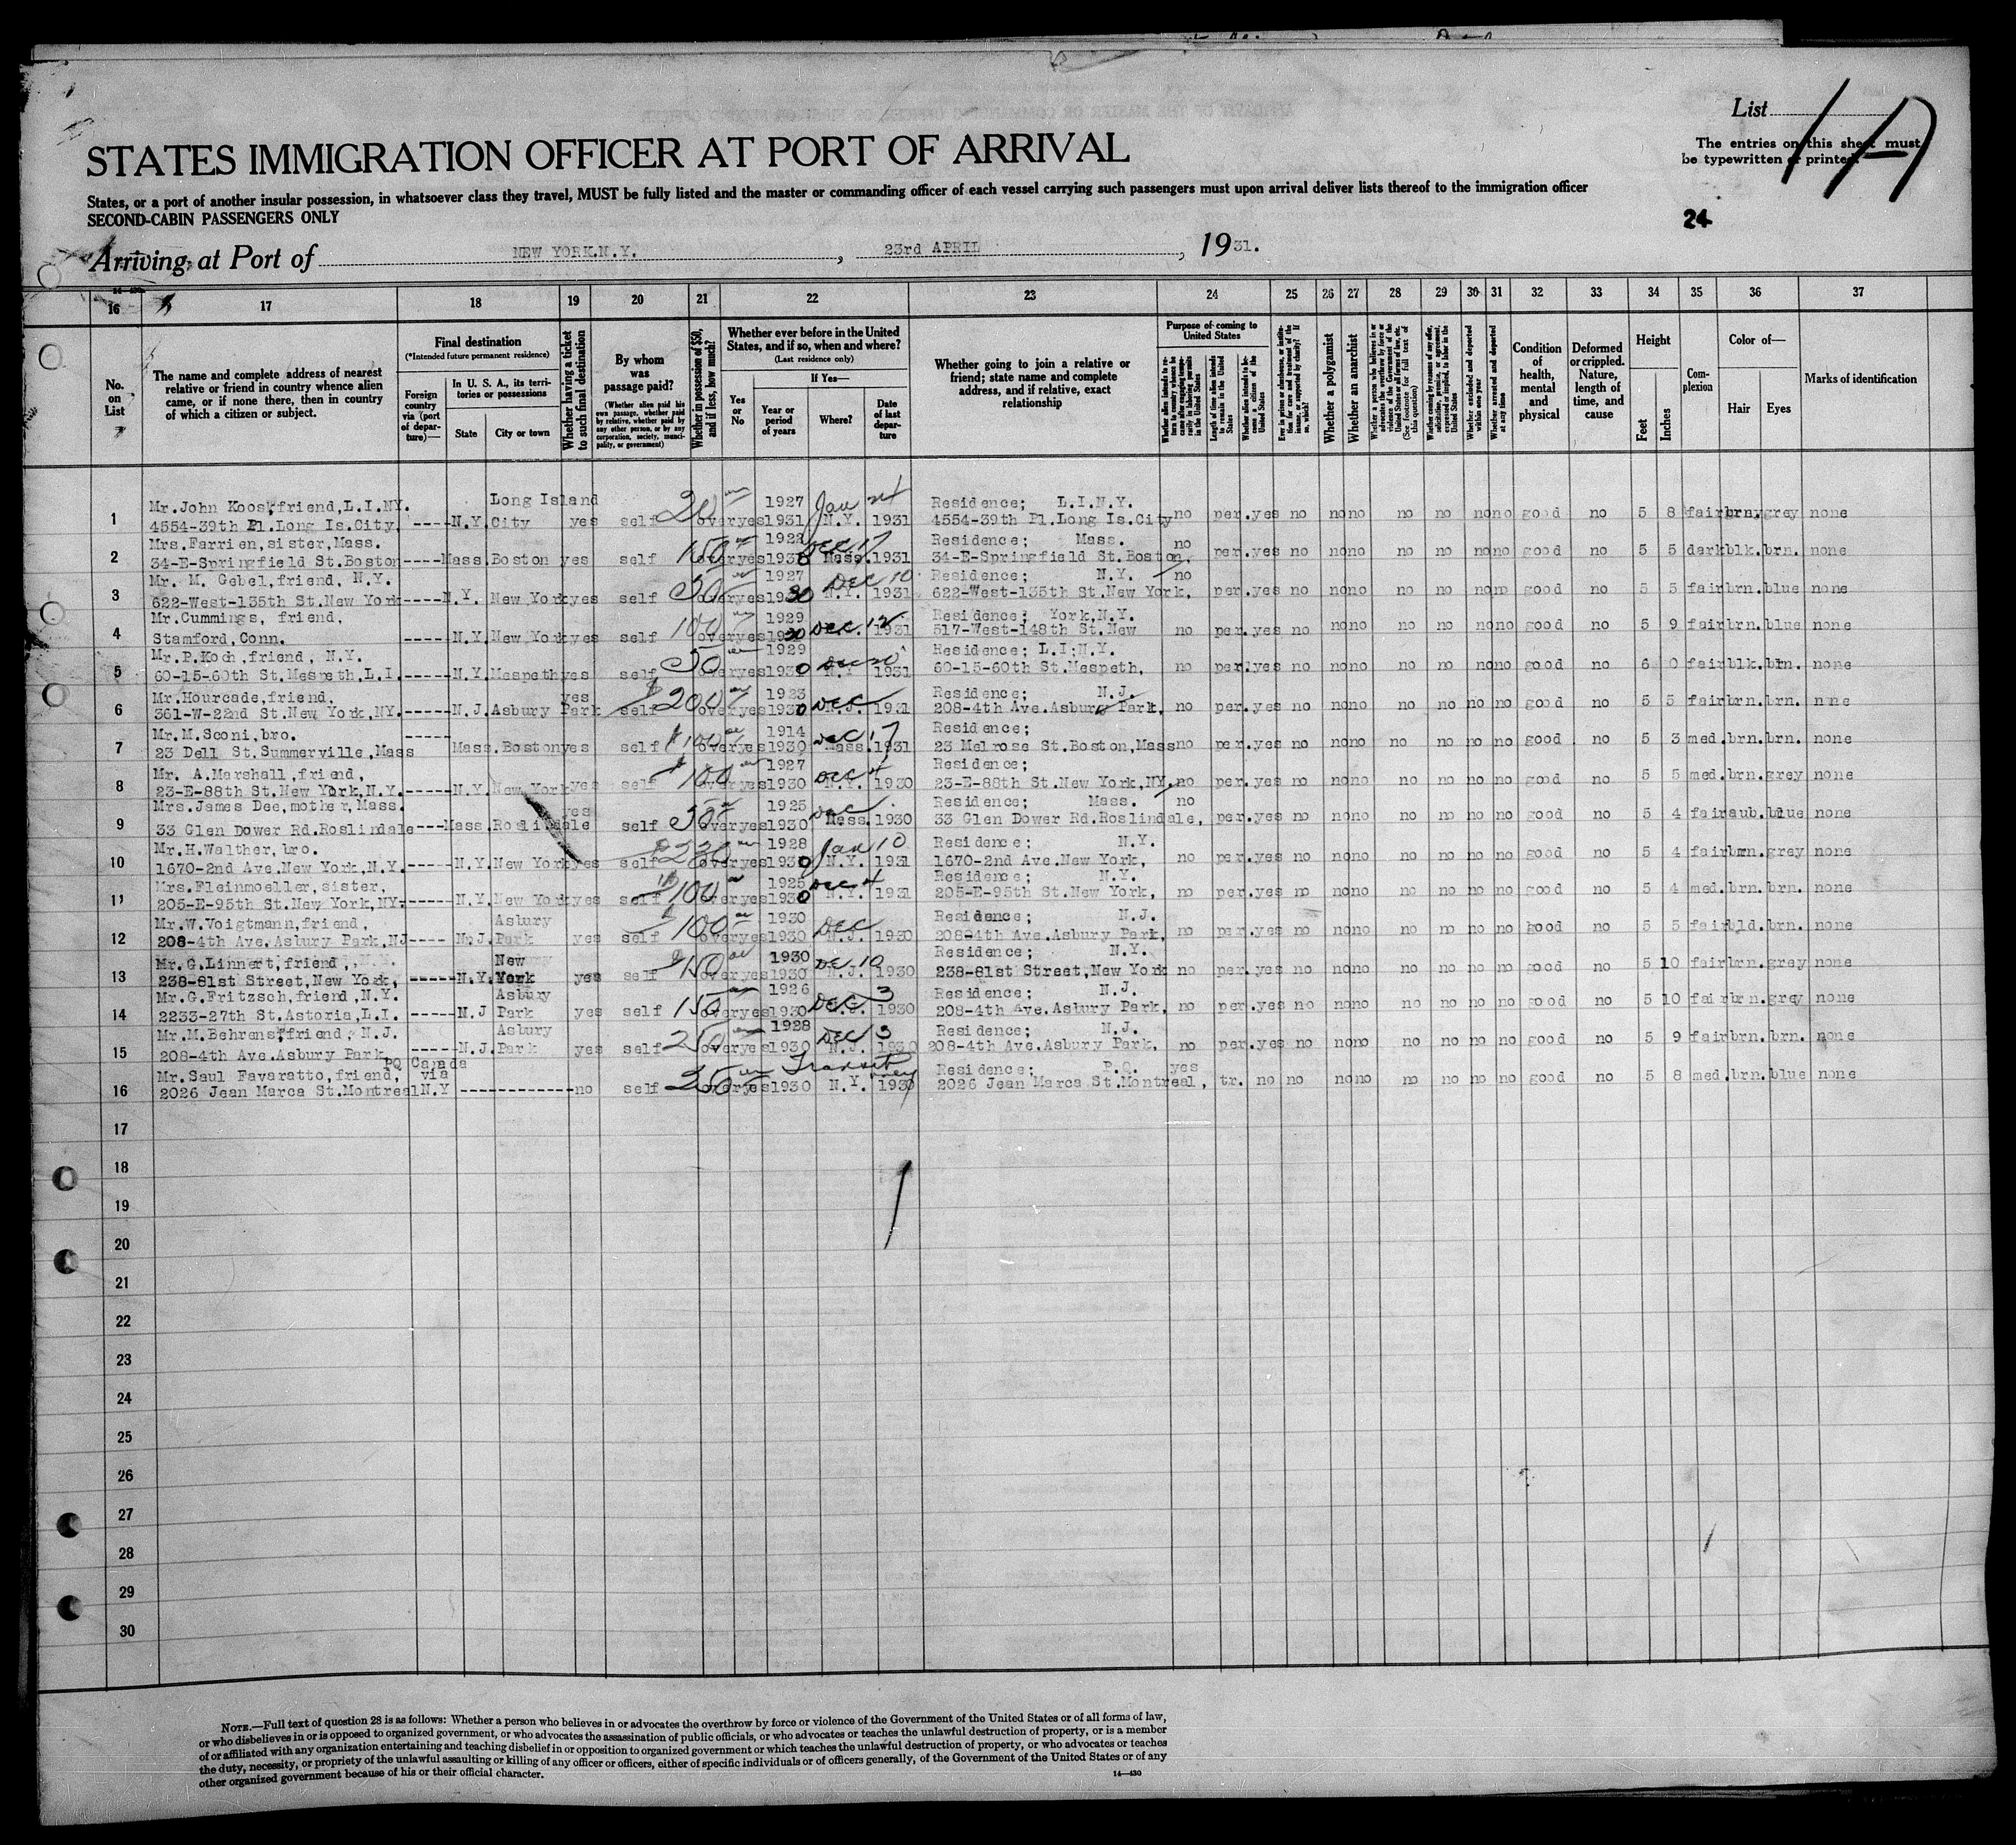 List
The entries on this sheet must
be typewritten or printed.
STATES IMMIGRATION OFFICER AT PORT OF ARRIVAL
States, or a port of another insular possession, in whatsoever class they travel, MUST be fully listed and the master or commanding officer of each vessel carrying such passengers must upon arrival deliver lists thereof to the immigration officer
SECOND-CABIN PASSENGERS ONLY
24
Arriving at Port of NEW YORK.N.Y., 23rd APRIL, 1931.
16 17 18 19 20 21 22 23 24 25 26 27 28 29 30 31 32 33 34 35 36 37
No. on List
The name and complete address of nearest relative or friend in country whence alien came, or if none there, then in country of which a citizen or subject.
Final destination
(*Intended future permanent residence)
Foreign country via (port of departure)—
In U. S. A., its territories or possessions
State City or town
Whether having a ticket to such final destination
By whom was passage paid?
(Whether alien paid his own passage, whether paid by relative, whether paid by any other person, or by any corporation, society, municipality, or government)
Whether in possession of $50, and if less, how much?
Whether ever before in the United States, and if so, when and where?
(Last residence only)
If Yes—
Yes or No
Year or period of years
Where?
Date of last departure
Whether going to join a relative or friend; state name and complete address, and if relative, exact relationship
Purpose of coming to United States
Length of time alien intends to remain in the United States
Whether alien intends to become a citizen of the United States
Whether a polygamist
Whether an anarchist
Whether excluded and deported within one year
Whether arrested and deported at any time
Condition of health, mental and physical
Deformed or crippled. Nature, length of time, and cause
Height
Feet Inches
Complexion
Color of—
Hair Eyes
Marks of identification
Mr.John Koos,friend,L.I.NY. Long Island 1927 Jan Residence; L.I.N.Y.
1 4554-39th Pl.Long Is.City. ---- N.Y. City yes self over yes 1931 N.Y. 1931 4554-39th Pl.Long Is.City no per. yes no no no no no no no good no 5 8 fair brn. grey none
Mrs.Farrien,sister,Mass. 1928 Dec 17 Residence; Mass. no
2 34-E-Springfield St.Boston ---- Mass. Boston yes self 150 over yes 1930 Mass. 1931 34-E-Springfield St.Boston, per. yes no no no no no no no good no 5 5 dark blk. brn. none
Mr. M. Gebel,friend, N.Y. 1927 Dec 10 Residence; N.Y. no
3 622-West-135th St.New York ---- N.Y. New York yes self 50 over yes 1930 N.Y. 1931 622-West-135th St.New York, per. yes no no no no no no no good no 5 5 fair brn. blue none
Mr.Cummings, friend, 1929 Dec 12 Residence; York,N.Y.
4 Stamford,Conn. ----- N.Y. New York yes self 100 over yes 1930 1931 517-West-148th St.New no per. yes no no no no no no no good no 5 9 fair brn. blue none
Mr.P.Koch,friend, N.Y. 1929 Residence; L.I.N.Y.
5 60-15-60th St.Mespeth,L.I. ----- N.Y. Mespeth yes self 50 over yes 1930 N.Y 1931 60-15-60th St.Mespeth, no per. yes no no no no no no no good no 6 0 fair blk. brn. none
Mr.Hourcade,friend, yes 1923 Dec Residence; N.J.
6 361-W-22nd St.New York,NY. ----- N.J. Asbury Park self $200 over yes 1930 N.J. 1931 208-4th Ave.Asbury Park, no per. yes no no no no no no no good no 5 5 fair brn. brn. none
Mr.M.Sconi,bro. ----- 1914 Dec 17 Residence;
7 23 Dell St.Summerville,Mass Mass. Boston yes self $100 over yes 1930 Mass. 1931 23 Melrose St.Boston,Mass no per. yes no no no no no no no good no 5 3 med. brn. brn. none
Mr. A.Marshall,friend, 1927 Dec 4 Residence;
8 23-E-88th St.New York,N.Y. ----- N.Y. New York yes self $100 over yes 1930 N.Y. 1930 23-E-88th St.New York,NY. no per. yes no no no no no no no good no 5 5 med. brn. grey none
Mrs.James Dee,mother,Mass. yes 1925 Dec Residence; Mass. no
9 33 Glen Dower Rd.Roslindale --- Mass. Roslindale self 50 over yes 1930 Mass. 1930 33 Glen Dower Rd.Roslindale, per. yes no no no no no no no good no 5 4 fair aub. blue none
Mr.H.Walther,bro. 1928 Jan 10 Residence; N.Y.
10 1670-2nd Ave.New York,N.Y. ----- N.Y. New York yes self over yes 1930 N.Y. 1931 1670-2nd Ave.New York, no per. yes no no no no no no no good no 5 4 fair brn. grey none
Mrs.Fleinmoeller,sister, 1925 Dec 4 Residence; N.Y.
11 205-E-95th St.New York,NY. ------ N.Y. New York yes self $100 over yes 1930 N.Y. 1931 205-E-95th St.New York, no per. yes no no no no no no no good no 5 4 med. brn. brn. none
Mr.W.Voigtmann,friend, Asbury 1930 Dec Residence; N.J.
12 208-4th Ave.Asbury Park,NJ ---- N.J. Park yes self $100 over yes 1930 N.J. 1930 208-4th Ave.Asbury Park, no per. yes no no no no no no no good no 5 5 fair bld. brn. none
Mr.G.Linnert,friend, N.Y. New 1930 Dec 10 Residence; N.Y.
13 238-81st Street,New York, ----- N.Y. York yes self $150 over yes 1930 N.J. 1930 238-81st Street,New York no per. yes no no no no no no no good no 5 10 fair brn. grey none
Mr.G.Fritzsch,friend,N.Y. Asbury 1926 Dec 3 Residence; N.J.
14 2233-27th St.Astoria,L.I. ----- N.J Park yes self 150 over yes 1930 N.J. 1930 208-4th Ave.Asbury Park, no per. yes no no no no no no no good no 5 10 fair brn. grey none
Mr.M.Behrens,friend, N.J. Asbury 1928 Dec 3 Residence; N.J.
15 208-4th Ave.Asbury Park ----- N.J. Park yes self 250 over yes 1930 N.J. 1930 208-4th Ave.Asbury Park. no per. yes no no no no no no no good no 5 9 fair brn. brn. none
PQ Canada Transit
Mr.Saul Favaratto,friend, via Residence; P.Q. yes
16 2026 Jean Marca St.Montreal N.Y ------------ no self over yes 1930 N.Y. 1930 2026 Jean Marca St.Montreal, tr. no no no no no no no no good no 5 8 med. brn. blue none
17
18
19
20
21
22
23
24
25
26
27
28
29
30
NOTE.—Full text of question 28 is as follows: Whether a person who believes in or advocates the overthrow by force or violence of the Government of the United States or of all forms of law,
or who disbelieves in or is opposed to organized government, or who advocates the assassination of public officials, or who advocates or teaches the unlawful destruction of property, or is a member
of or affiliated with any organization entertaining and teaching disbelief in or opposition to organized government or which teaches the unlawful destruction of property, or who advocates or teaches
the duty, necessity, or propriety of the unlawful assaulting or killing of any officer or officers, either of specific individuals or of officers generally, of the Government of the United States or of any
other organized government because of his or their official character.
14—430